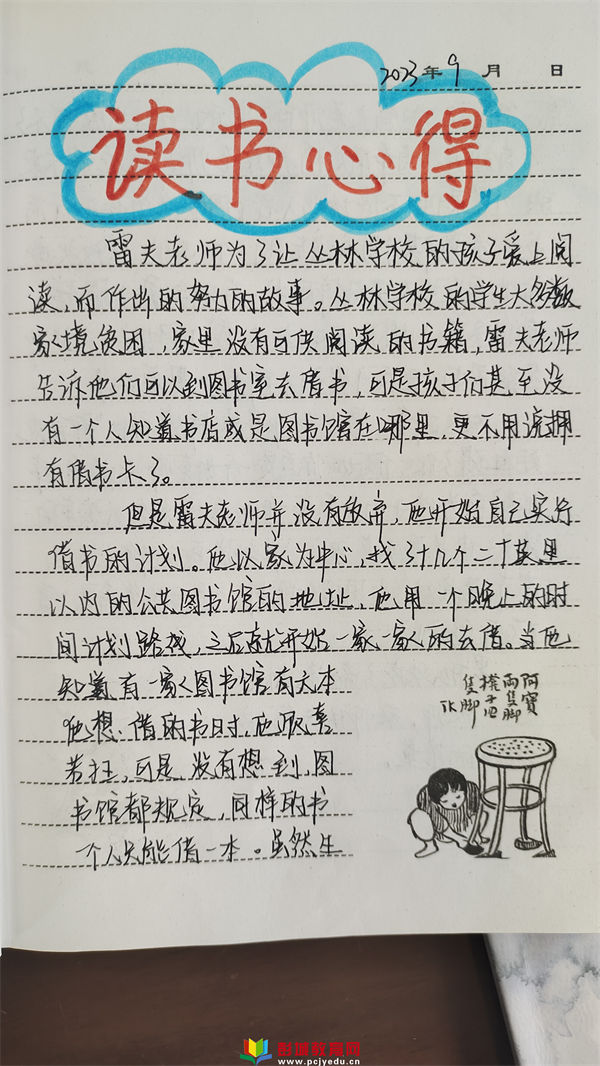 2023年9月 日
读书心得
雷夫老师为了让丛林学校的孩子爱上阅
读,而作出的努力的故事。丛林学校的学生大多数
家境贫困,家里没有可供阅读的书籍,雷夫老师
告诉他们可以到图书室去借书,可是孩子们甚至没
有一个人知道书店或是图书馆在哪里,更不用说拥
有借书卡了。
但是雷夫老师并没有放弃,他开始自己实行
借书的计划。他以家为中心,找了十几个二十英里
以内的公共图书馆的地址,他用一个晚上的时
间计划路线,之后就开始一家一家的去借。当他
知道有一家图书馆有六本
他想借的书时,他欣喜
若狂,可是没有想到,图
书馆都规定,同样的书
一个人只能借一本。虽然生
阿寶
兩隻脚
凳子四
隻脚
彭城教育网
www.pcjyedu.cn